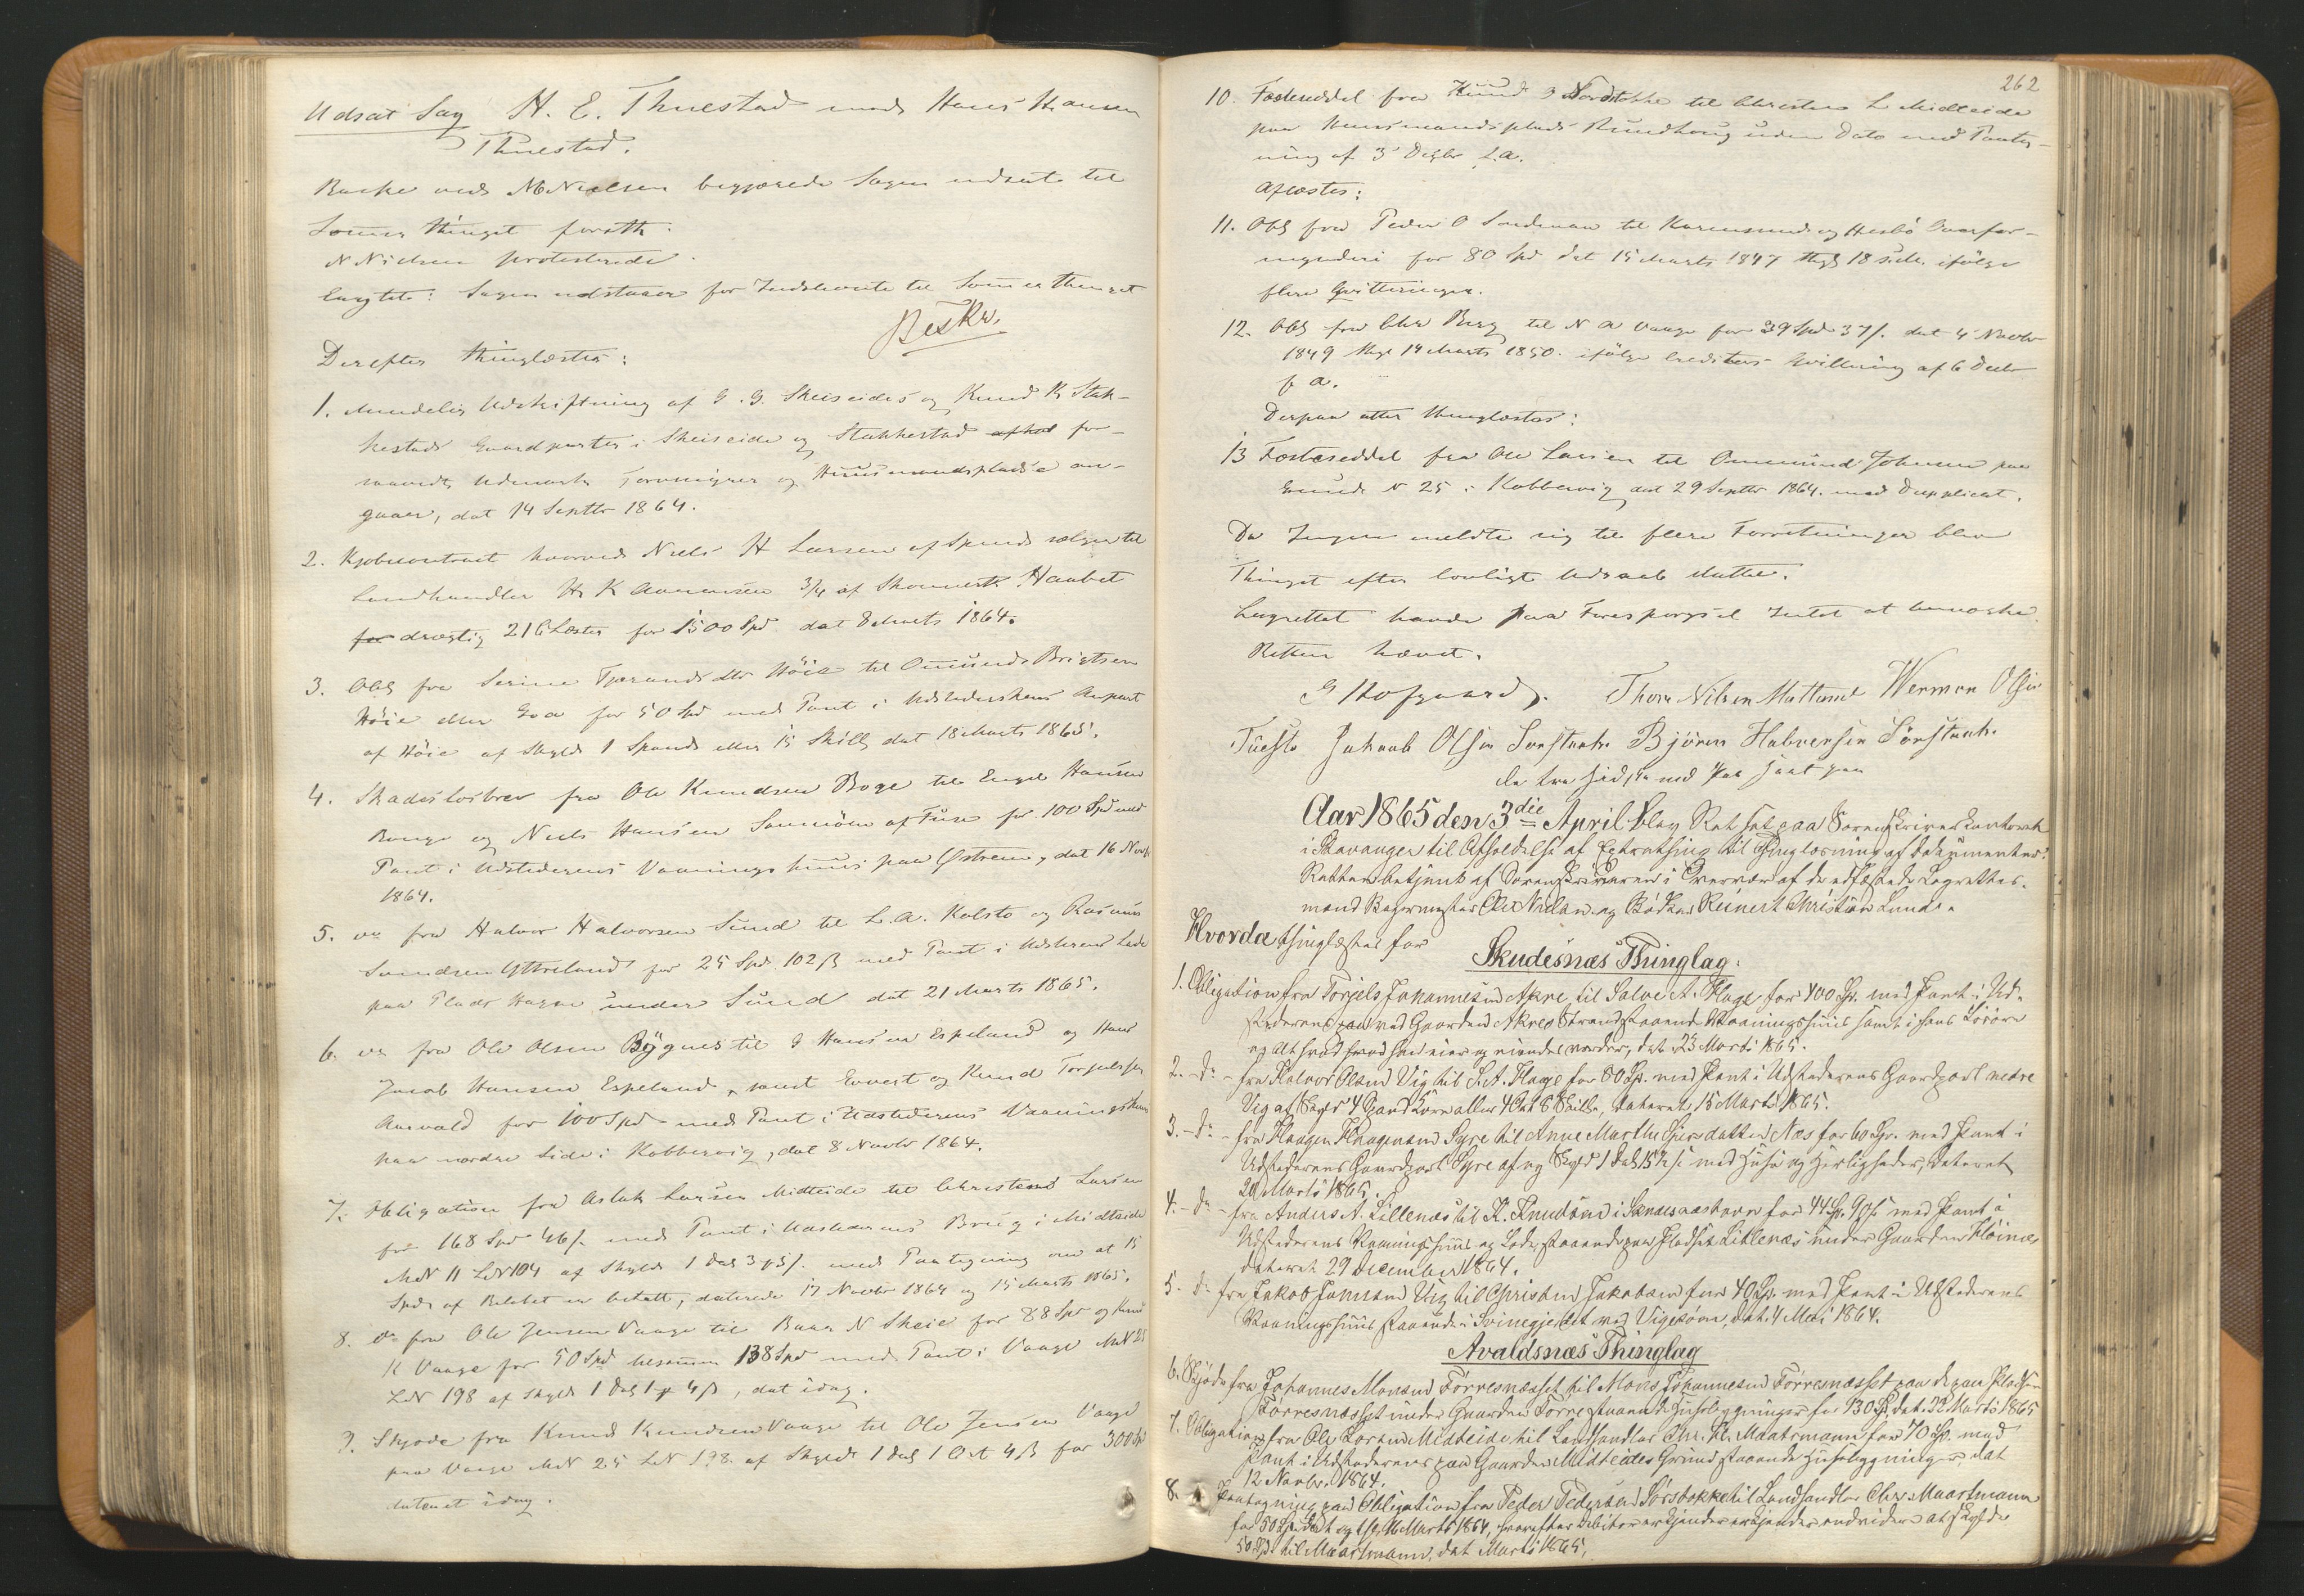 Udsat Sag H. E. Thuestad mod Hans Hansen
Thuestad.
Backe ved N Nielsen begjærede Sagen udsat til
Sommerthinget
N Nielsen protesterede.
Eragtet: Sagen udstaaer for Indstevnte til Sommerthinget
Beskr.
Derefter thinglæstes:
1. Mindelig Udskiftning af G. G. Skeiseides og Knud K Stak-
kestads Gaardparter i Skeiseide og Stakkestad for-
saavidt Udmark Torvmyrer og Huusmandspladse an-
gaaer, dat 14 Septbr 1864.
2. Kjøbecontract hvorved Niels H Larsen af sælger til
Landhandler H K 3/4 af Skonnert Haabet
drægtig 21 Læster for 1500 Spd dat 8 Marts 1864.
3. Obl fra Serine Tjerandsdtr Høie til Omund Brigtsen
Høie eller for 50 Spd med Pant i Udstederskens Anpart
af Høie af Skyld 1 Spand eller 15 Skill dat 18 Marts 1865.
4. Skadesløsbrev fra Ole Knudsen Boge til Engel Hansen
og Niels Hansen af for 100 Spd med
Pant i Udstederens Vaaningshuus paa Østrem, dat 16 Novbr
1864.
5. do fra Halvor Halvorsen Sund til L. A. Kolstø og Rasmus
Svendsen Ytreland for 25 Spd 102 ß med Pant i Udstederens Lade
paa Plads under Sund dat 21 Marts 1865.
6. do fra Ole Olsen Bygnes til Hansen Espeland og Hans
Jacob Hansen Espeland, samt Evert og Knud Torgersen
for 100 Spd med Pant i Udstederens Vaaningshuus
paa nordre Side i Kobbervig, dat 8 Novbr 1864.
7. Obligation fra Aslak Larsen Midteide til Christense Larsen
for 168 Spd 46 ß. med Pant i Udstederens Brug i Midteide
MN 11 LN 104 af Skyld 1 Dal 3 ß. med Paategning om at 15
Spd af Beløbet er betalt, daterede 17 Novbr 1864 og 15 Marts 1865.
8. do fra Ole Jensen Vaage til Baar N Skeie for 88 Spd og Knud
K Vaage for 50 Spd tilsammen 138 Spd med Pant i Vaage MN 25
LN 198 af Skyld 1 Dal 1 4 ß, dat idag.
9. Skjøde fra Knud Knudsen Vaage til Ole Jensen Vaage
paa Vaage MN 25 LN 198 af Skyld 1 Dal 1 Ort 4 ß for 300 Spd
dateret idag.
262
10. Fæsteseddel fra Knud Nordstokke til Christen L Midteide
paa Huusmandsplads uden Dato med Paateg-
ning af 3 Decbr f. A.
Aflæstes:
11. Obl fra Peder O Sandman til Karmsund og Hesbø Overfor-
mynderi for 80 Spd dat 15 Marts 1847 thgl 18 s. M. ifølge
flere Qvitteringer.
12. Obl fra Chr Berg til N A Vaage for 39 Spd 37 ß. dat 4 Novbr
1849 thgl 14 Marts 1850. ifølge Creditors Qvittering af 6 Decbr
f. A.
Derpaa atter thinglæstes:
13 Fæsteseddel fra Ole Larsen til Ommund Johnsen paa
Grund N 25 i Kobbervig dat 29 Septbr 1864. med Dupplicat.
Da Ingen meldte sig til flere Forretninger blev
Thinget efter lovligt Udraab sluttet.
Lagrettet havde paa Forespørgsel Intet at bemærke.
Retten hævet.
G Hofgaard. Thore Nilsen Matland Wermon Olsen
Tuestø Jakaab Olsen Sørstaak Bjørn Halvorsen Sørstaak
de tre sidste med paaholdt Pen
Aar 1865 den 3die April blev Ret sat paa Sorenskriverkontoret
i Stavanger til Afholdelse af Extrathing til Thinglæsning af Dokumenter.
Retten betjent af Sorenskriveren i Overvær af de edfæstede Lagrettes-
mænd Bagermester Ole Nielsen og Bødker Reinert Christian Lunde.
Hvorda thinglæstes for Skudesnæs Thinglag:
1. Obligation fra Torjels Johannesen Akre til Salve A. Flage for 400 Sp. med Pant i Ud-
stederens paa ved Gaarden Akres Strand staaende Vaaningshuus samt i hans Løsøre
og Alt hvad hvad han eier og eiendes vorder, dat. 23 Marts 1865.
2. Do - fra Halvor Olsen Vig til S. A. Flage for 80 Sp. med Pant i Udstederens Gaardpart nedre
Vig af Skyld 4 Spand Korn eller 4 Ort 8 Skill, dateret 15 Marts 1865.
3. - Do - fra Haagen Haagensen Syre til Anne Marthe Sjursdatter Næs for 60 Sp. med Pant i
Udstederens Gaardpart Syre af ny Skyld 1 Dal 15 ½ ß med Huse og Herligheder, dateret
20 Marts 1865.
4. - Do - fra Anders A. Lillenæs til K. Knudsen i Skudesnæshavn for 44 Sp. 90 ß med Pant i
Udstederens Vaaningshuus og Lade, staaende paa Pladset Litlenæs under Gaarden Høines
dateret 29 December 1864.
5. - Do fra Jakob Jonassen Vig til Christen Jakobsen for 40 Sp. med Pant i Udstederens
Vaaningshuus staaende i Svinegjerdet ved Vigesøen, dat. 4 Mai 1864.
Avaldsnæs Thinglag
6. Skjøde fra Johannes Monsen Førresnæsset til Mons Johannesen Førresnæsset paa de paa Pladsen
Førresnæsset under Gaarden Førre staaende Huusbygninger for 130 Sp. dat. 22 Marts 1865
7. Obligation fra Ole Larsen Midteide til Landhandler Chr. H. Maartmann for 70 Sp. med
Pant i Udstederens paa Gaarden Midteides Grund staaende Huusbygninger, dat
12 Novbr. 1864.
8. Paategning paa Obligation fra Peder Pedersen Sørstokke til Landhandler Chr. Maartmann
for 50 Sp. dat og thgl. 16 Marts 1864, hvorefter Debitor erkjender endvidere at skylde
50 Spd. til Maartmann, dat Marts 1865.